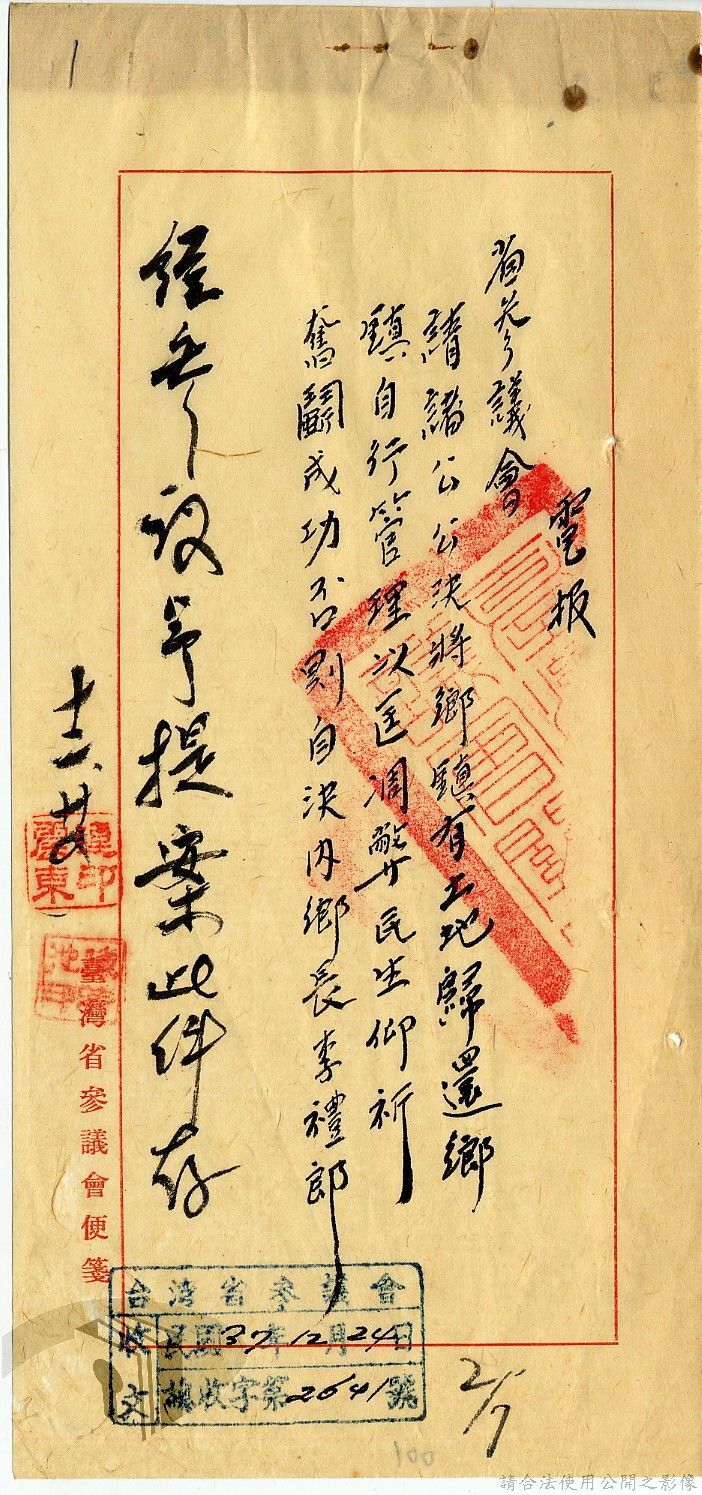 電報
省參議會
請諸公公決將鄉鎮有土地歸還鄉
鎮自行管理以匡凋弊民生仰祈
奮鬪成功否則自決內鄉長李禮郎
提案此件存
十二、廿
臺灣省參議會便箋
台灣省參議會
收文
民國37年12月24日
收字第2641號
2/7
1
001
請合法使用公開之影像